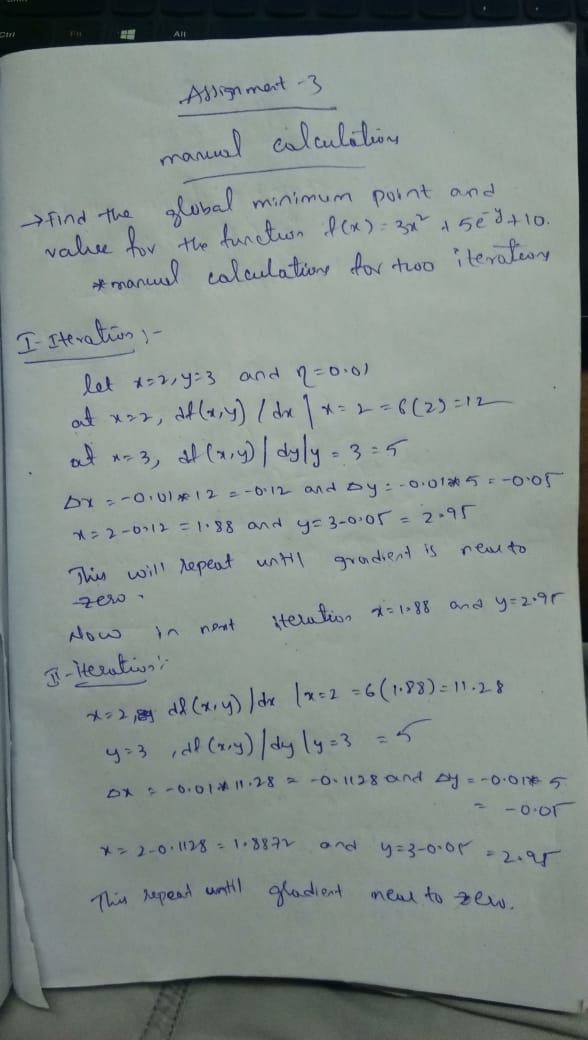 Ctrl
Fn
Alt
Assignment-3
manual calculations
→ Find the global minimum point and
value for the function f(x) = 3x² + 5e⁻ʸ + 10.
* manual calculations for two iterations
I - Iteration :-
let x=2, y=3 and η=0.01
at x=2, df(x,y) / dx | x=2 = 6(2) = 12
at x=3, df(x,y) | dy|y=3 = 5
Δx = -0.01*12 = -0.12 and Δy = -0.01*5 = -0.05
x = 2-0.12 = 1.88 and y = 3-0.05 = 2.95
This will repeat until gradient is near to
zero.
Now in next iteration x=1.88 and y=2.95
II - iteration :
x=2, df(x,y) | dx |x=2 = 6(1.88) = 11.28
y=3, df(x,y) | dy |y=3 = 5
Δx = -0.01*11.28 = -0.1128 and Δy = -0.01* 5
= -0.05
x = 2-0.1128 = 1.8872 and y = 3-0.05 = 2.95
This repeat until gladient near to zero.